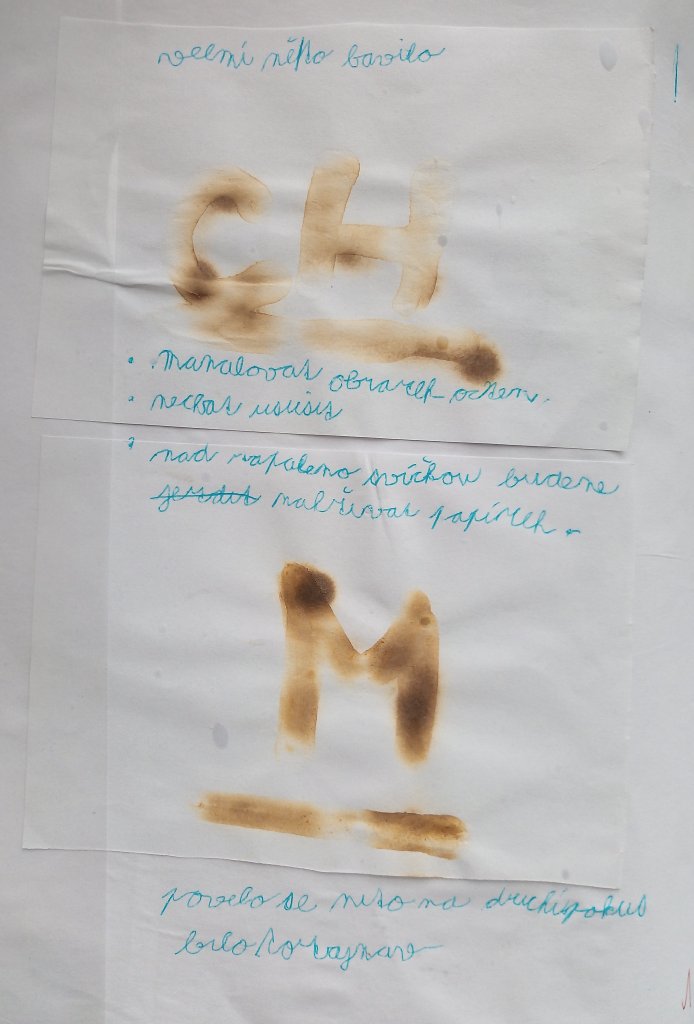 velmi něto bavilo
CH
. .Mamalovat obrazek octem.
. nechat ususit
. nad zapaleno svíčkou budeme
nalřivat papírek.
M
povelo se mito na druchi pokus
bilo to tajnare